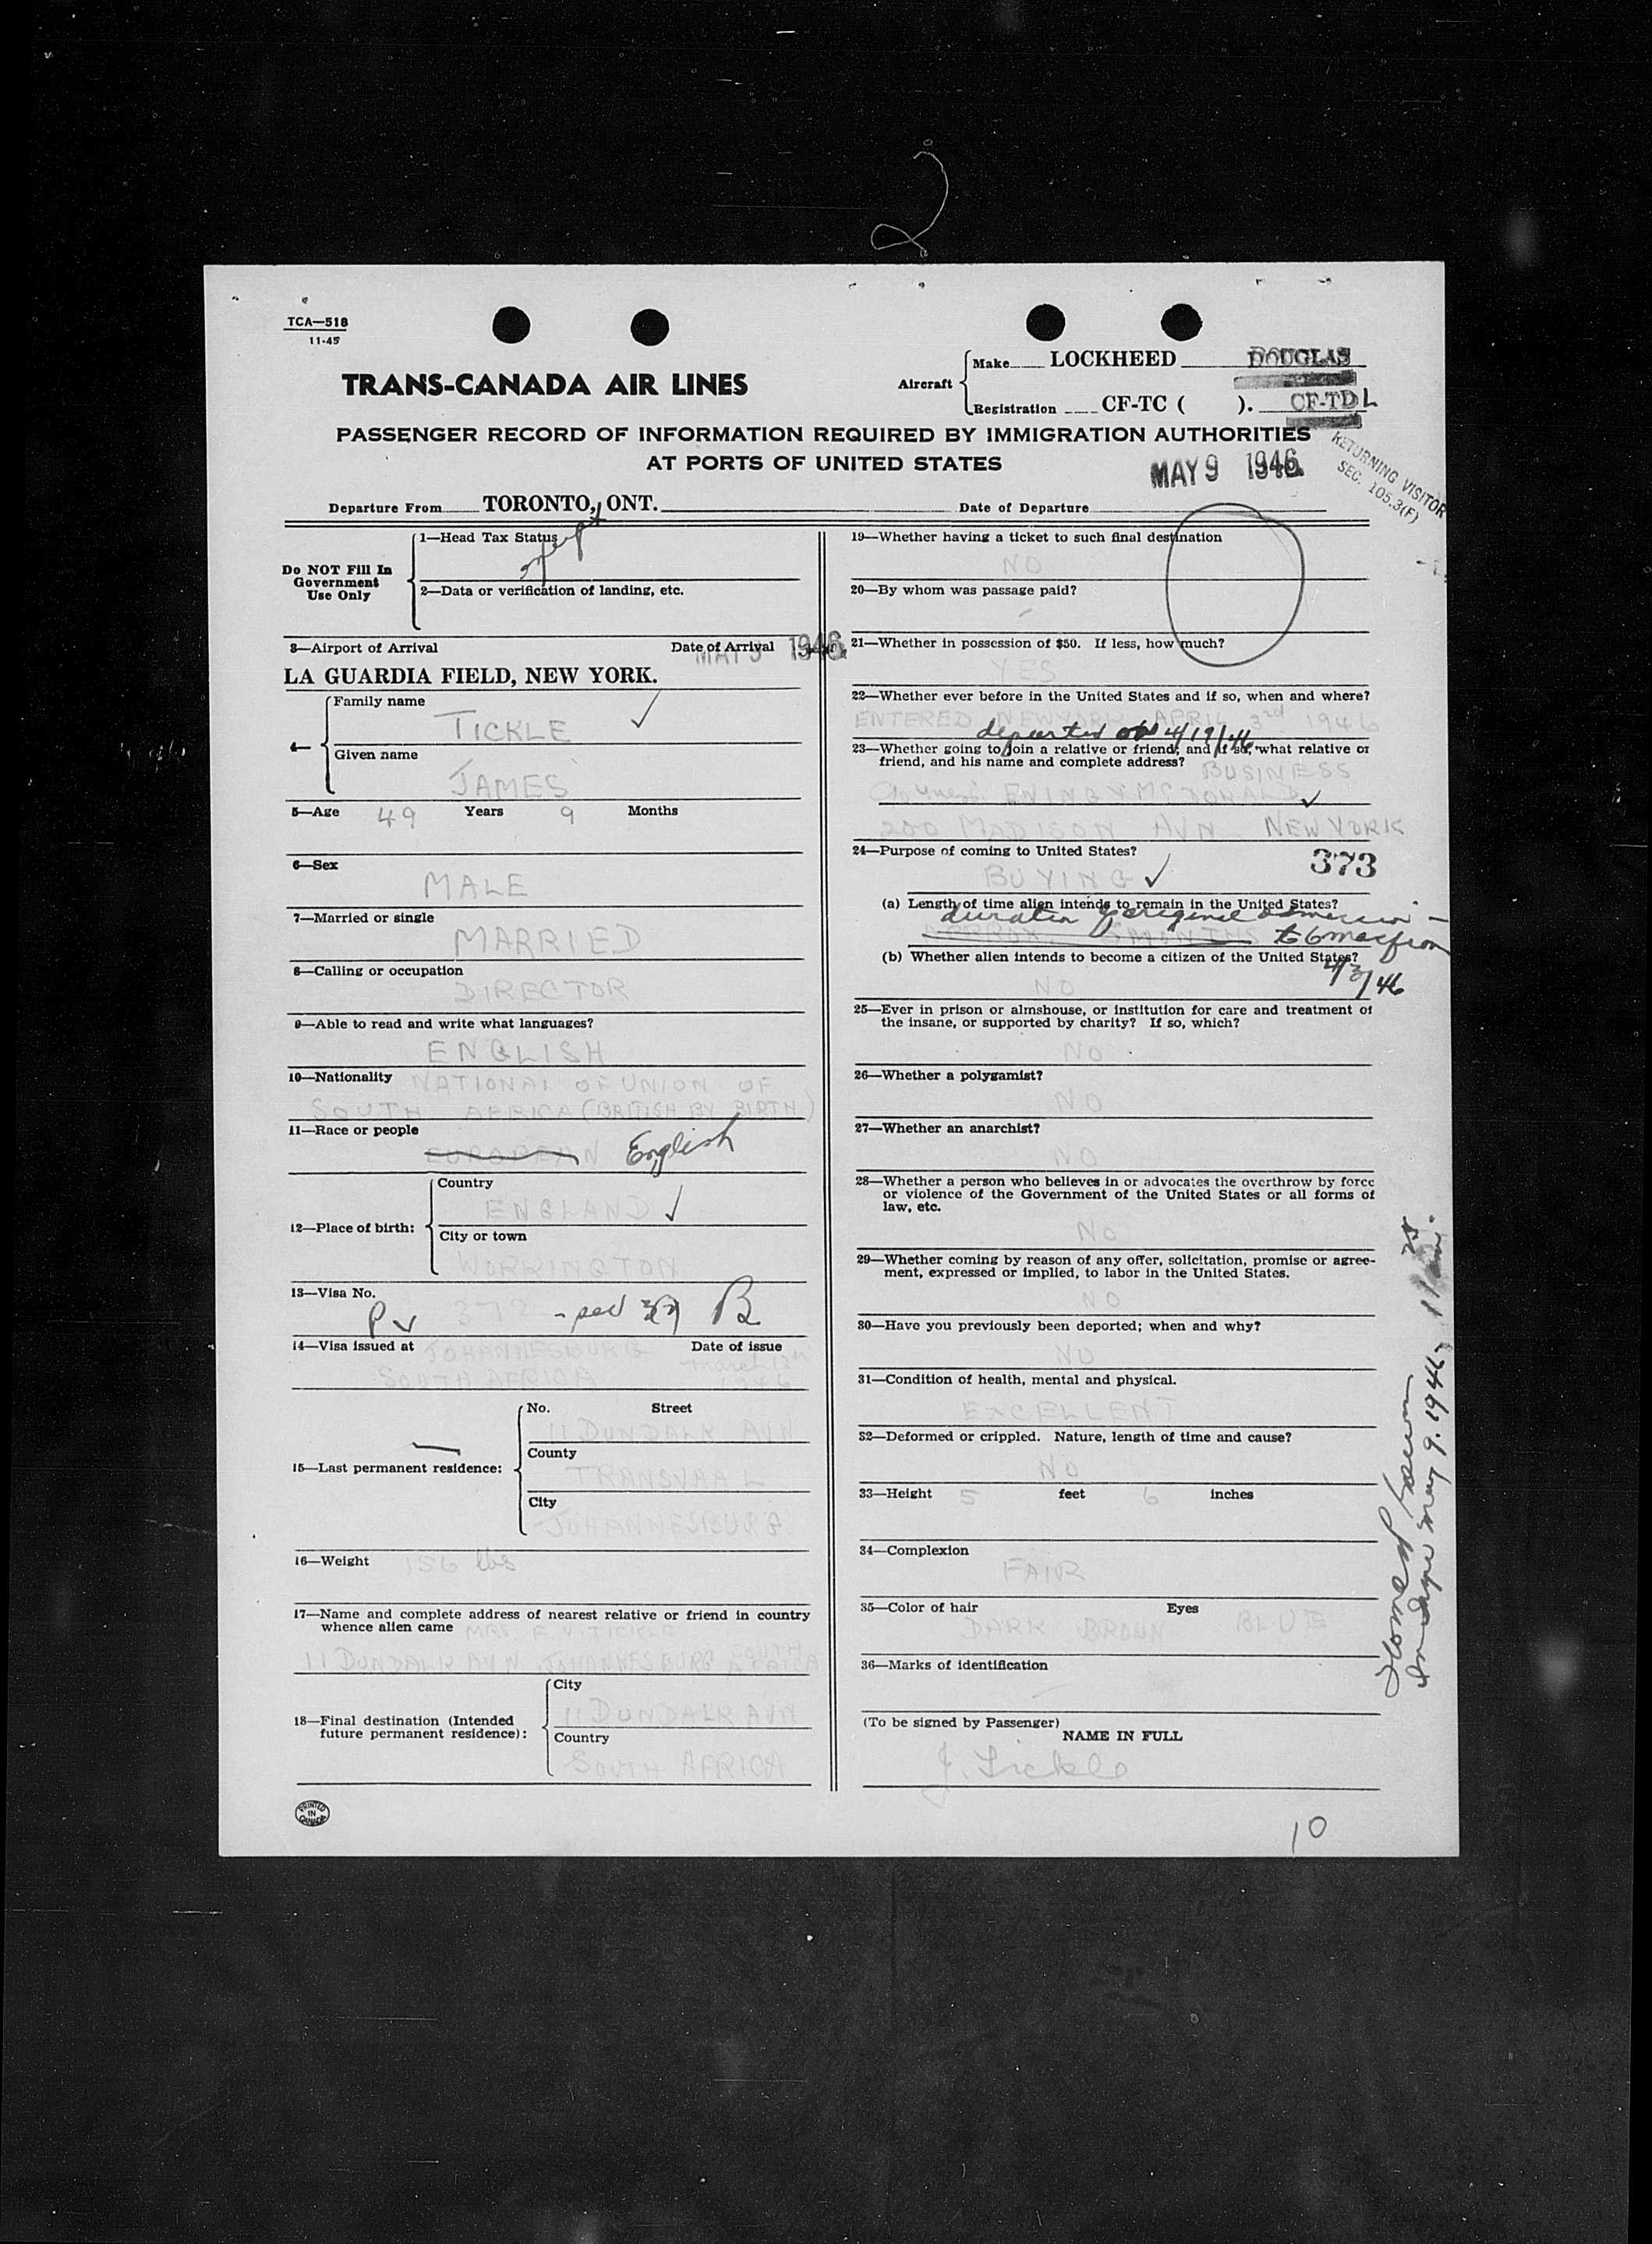 2
TCA—518
11-45
TRANS-CANADA AIR LINES
Aircraft
Make LOCKHEED DOUGLAS
Registration CF-TC ( ). CF-TDL
PASSENGER RECORD OF INFORMATION REQUIRED BY IMMIGRATION AUTHORITIES
AT PORTS OF UNITED STATES
MAY 9 1946
RETURNING VISITOR
SEC. 105.3(F)
Departure From TORONTO, ONT.
Date of Departure
Do NOT Fill In
Government
Use Only
1—Head Tax Status
2—Data or verification of landing, etc.
3—Airport of Arrival Date of Arrival
MAY 9 1946
LA GUARDIA FIELD, NEW YORK.
4—
Family name
TICKLE
Given name
JAMES
5—Age 49 Years 9 Months
6—Sex
MALE
7—Married or single
MARRIED
8—Calling or occupation
DIRECTOR
9—Able to read and write what languages?
ENGLISH
10—Nationality NATIONAL OF UNION OF
SOUTH AFRICA (BRITISH BY BIRTH)
11—Race or people
EUROPEAN English
12—Place of birth:
Country
ENGLAND
City or town
WORRINGTON
13—Visa No.
PV 372
14—Visa issued at JOHANNESBURG Date of issue
SOUTH AFRICA March 12th
1946
15—Last permanent residence:
No. Street
11 DUNDALK AVN
County
TRANSVAAL
City
JOHANNESBURG
16—Weight 156 lbs
17—Name and complete address of nearest relative or friend in country
whence alien came MRS. F. V. TICKLE
11 DUNDALK AVN JOHANNESBURG SOUTH AFRICA
18—Final destination (Intended
future permanent residence):
City
11 DUNDALK AVN
Country
SOUTH AFRICA
PRINTED
IN
CANADA
19—Whether having a ticket to such final destination
NO
20—By whom was passage paid?
-
21—Whether in possession of $50. If less, how much?
YES
22—Whether ever before in the United States and if so, when and where?
ENTERED NEW YORK APRIL 3rd 1946
departed 4/19/46
23—Whether going to join a relative or friend, and if so, what relative or
friend, and his name and complete address? BUSINESS
EWING & MCDONALD
200 MADISON AVN NEW YORK
24—Purpose of coming to United States?
373
BUYING
(a) Length of time alien intends to remain in the United States?
duration of original admission —
APPROX. 5 MONTHS to 6 mos from
(b) Whether alien intends to become a citizen of the United States?
4/3/46
NO
25—Ever in prison or almshouse, or institution for care and treatment of
the insane, or supported by charity? If so, which?
NO
26—Whether a polygamist?
NO
27—Whether an anarchist?
NO
28—Whether a person who believes in or advocates the overthrow by force
or violence of the Government of the United States or all forms of
law, etc.
NO
29—Whether coming by reason of any offer, solicitation, promise or agree-
ment, expressed or implied, to labor in the United States.
NO
30—Have you previously been deported; when and why?
NO
31—Condition of health, mental and physical.
EXCELLENT
32—Deformed or crippled. Nature, length of time and cause?
NO
33—Height 5 feet 6 inches
34—Complexion
FAIR
35—Color of hair Eyes
DARK BROWN BLUE
36—Marks of identification
-
(To be signed by Passenger)
NAME IN FULL
J. Tickle
May 9. 1946
10